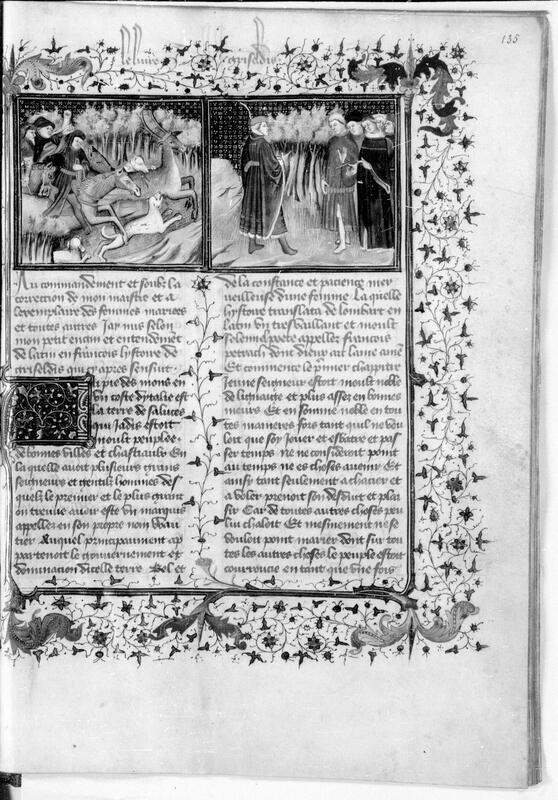 135
le livre griseldis
Au commandement et soubz la
correction de mon maistre et a
lexemplaire des femmes mariees
et toutes autres Jay mis selon
mon petit engin et entendement
de latin en francois lystoire de
griseldis qui apres sensuit
u pie des mons en
vn coste dytalie est
la terre de saluces
qui Jadis estoit
moult peuplee
de bonnes villes et chasteaulx En
la quelle auoit plusieurs grans
seigneurs et gentilz hommes des
quelz le premier et le plus grant
on treuue auoir este vn marquis
appelle en son propre nom Wau
tier Auquel principaument ap
partenoit le gouuernement et
dominacion dicelle terre Bel et
de la constance et pacience mer
ueilleuse dune femme La quelle
hystoire translata de lombart en
latin vn tresuaillant et moult
solennel poete appelle francois
petrach dont dieux ait lame amen
Et commence le premier chappitre
Jeune seigneur estoit moult noble
de lignaige et plus asses en bonnes
meurs Et en somme noble en tou
tes manieres fors tant quil ne vou
loit que soy Jouer et esbatre et pas
ser temps Ne ne consideroit point
au temps ne es choses auenir Et
ainsy tant seulement a chacier et
a voler prenoit son deduit et plai
sir Car de toutes autres choses peu
lui chaloit Et mesmement ne se
vouloit point marier dont sur tou
tes les autres choses le peuple estoit
courroucie en tant que vne fois